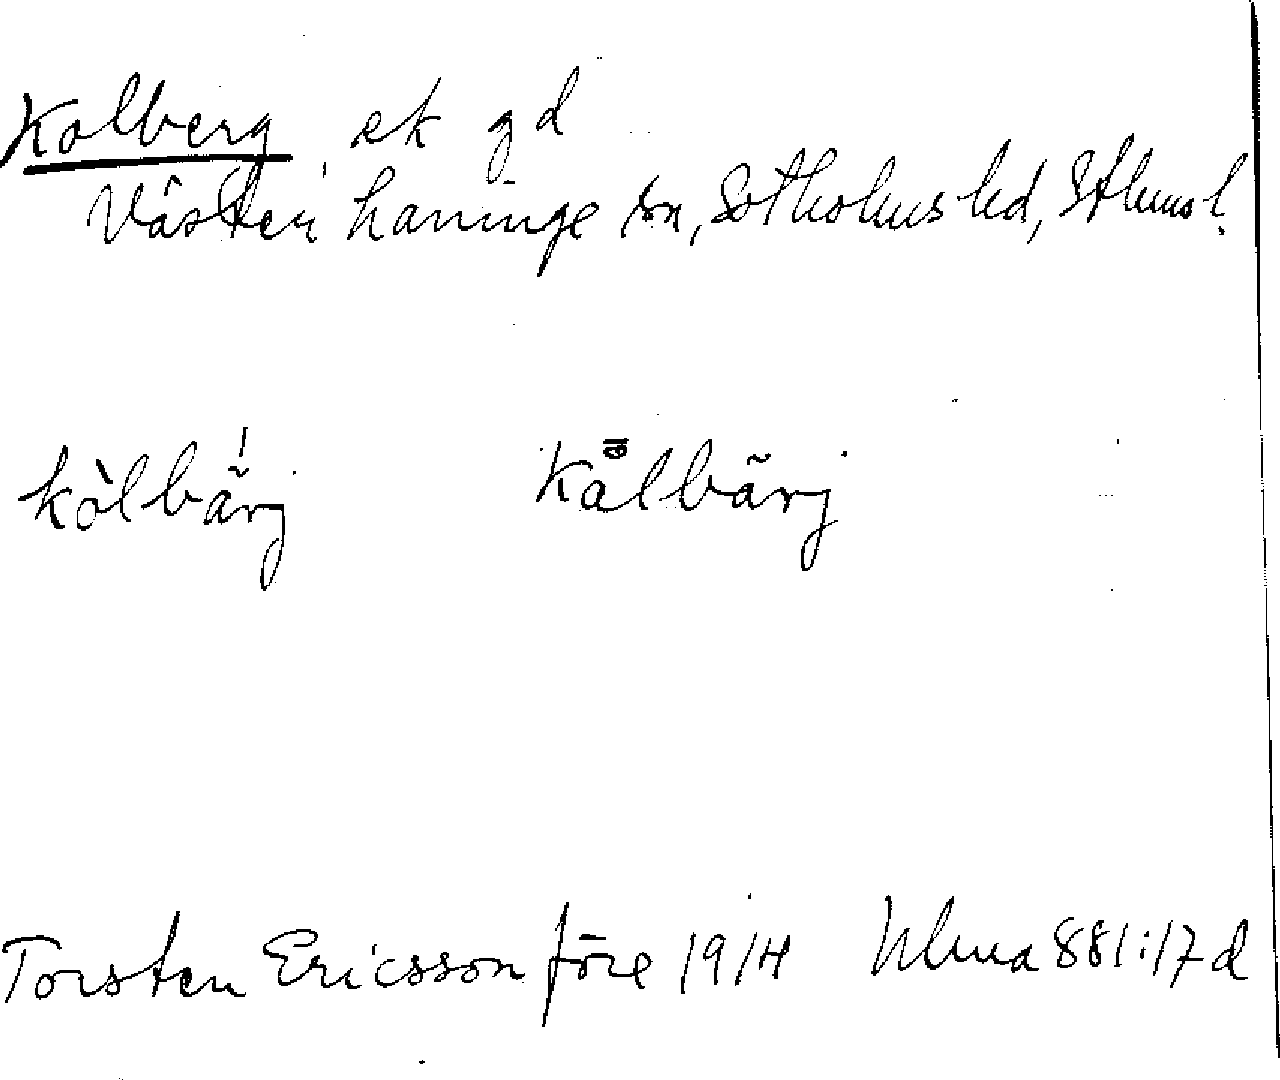 Kolberg, ek gd
Västerhaninge sn, Sotholms hd, Sthms l.
kòlbä̃rj Kålbärj
Torsten Ericsson före 1914 Ulma 881:17 d